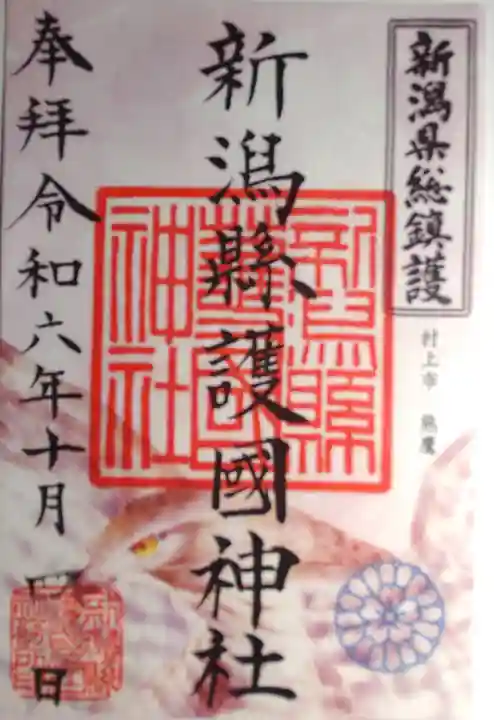 新潟県総鎮護
村上市 熊鷹
新潟縣護國神社
新潟縣
護國
神社
奉拝令和六年十月四日